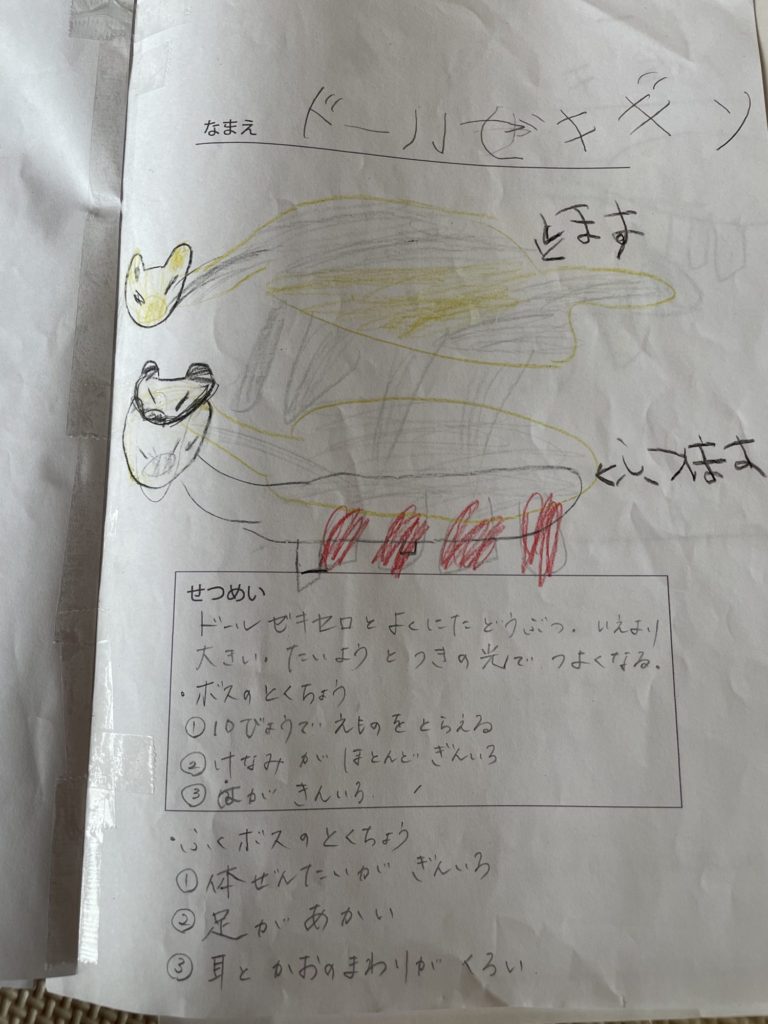 なまえ ドールゼキギン
ぼす
ふくぼす
せつめい
ドールゼキセロとよくにたどうぶつ。いえより
大きい。たいようとつきの光でつよくなる。
・ボスのとくちょう
①10びょうでえものをとらえる
②けなみがほとんどぎんいろ
③はがきんいろ
・ふくボスのとくちょう
①体ぜんたいがぎんいろ
②足があかい
③耳とかおのまわりがくろい